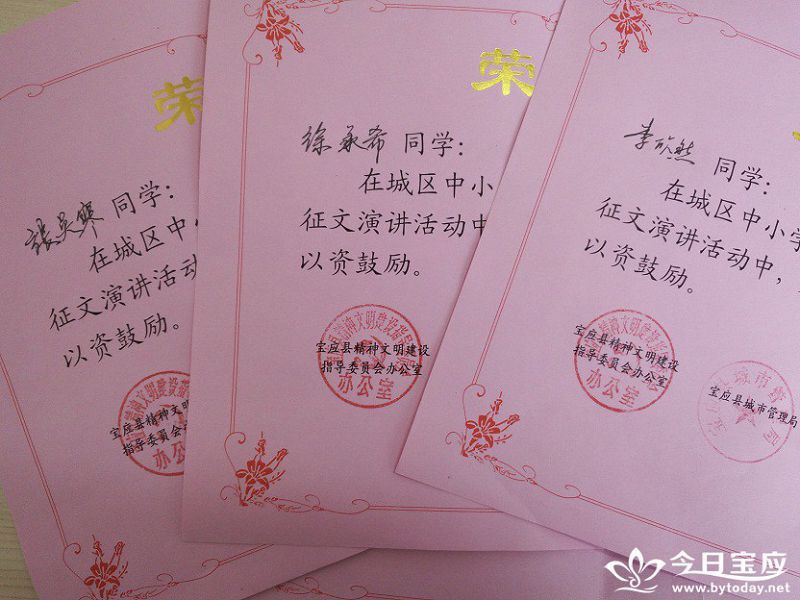 荣
張吴寒 同学：
在城区中小
征文演讲活动
以资鼓励。
宝应县精神文明
指导委员会办
办公室
荣
徐承希 同学：
在城区中小
征文演讲活动中
以资鼓励。
宝应县精神文明建设
指导委员会办公室
办公室
李欣然 同学：
在城区中小学
征文演讲活动中，
以资鼓励。
宝应县精神文明建设
指导委员会办公室
办公室
宝应县城市管理局
今日宝应
www.bytoday.net